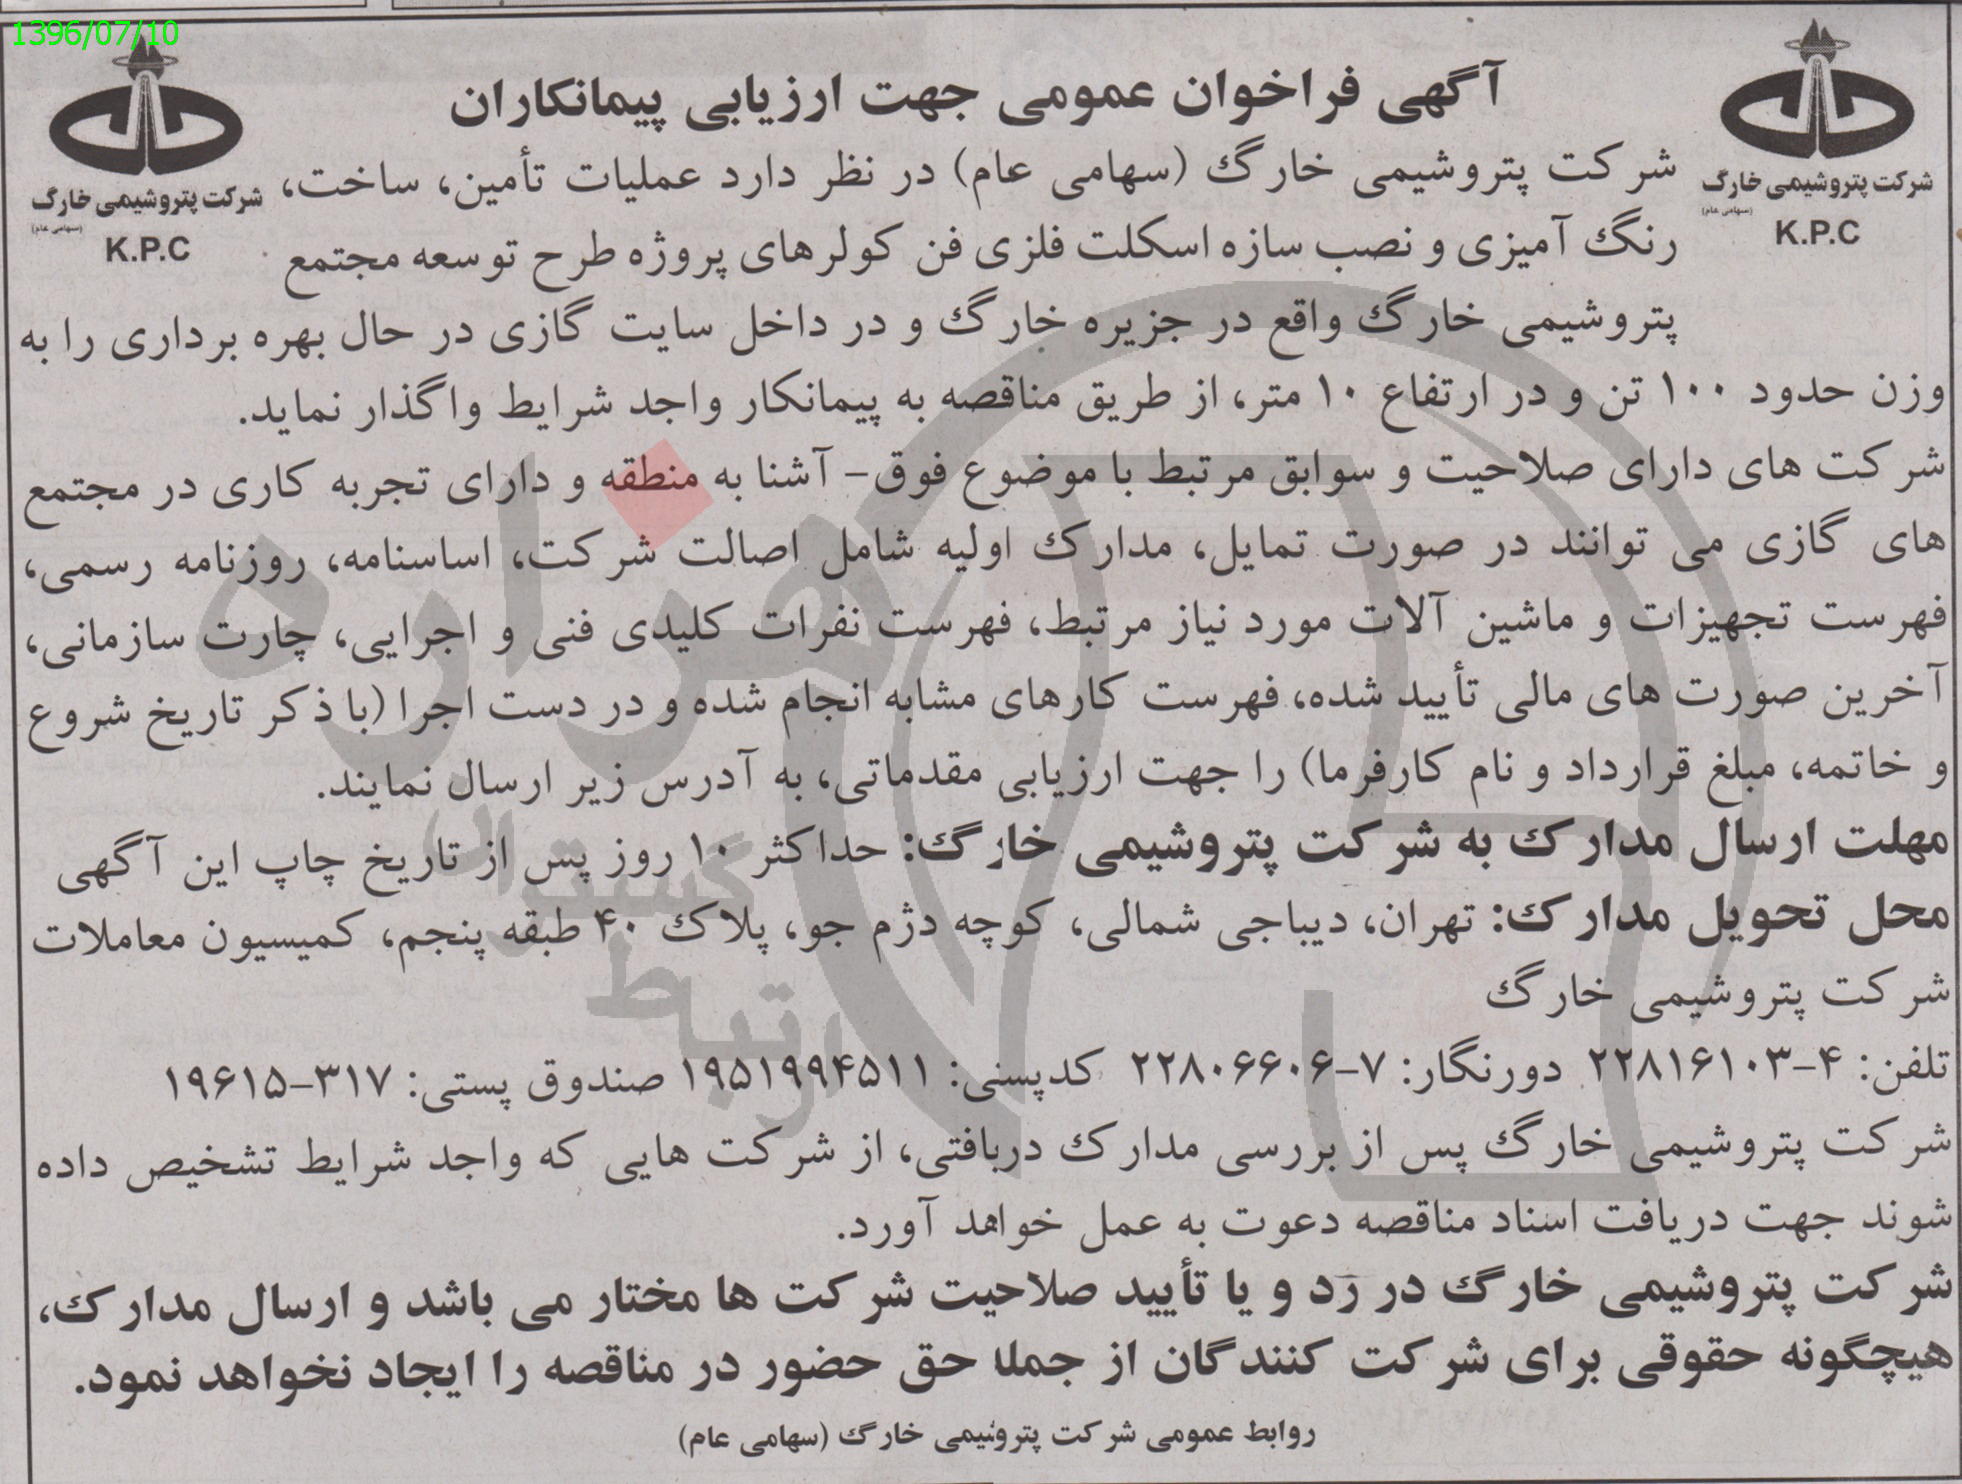 1396/07/10
آگهی فراخوان عمومی جهت ارزیابی پیمانکاران
شرکت پتروشیمی خارگ
(سهامی عام)
K.P.C
شرکت پتروشیمی خارگ
(سهامی عام)
K.P.C
شرکت پتروشیمی خارگ (سهامی عام) در نظر دارد عملیات تأمین، ساخت،
رنگ آمیزی و نصب سازه اسکلت فلزی فن کولرهای پروژه طرح توسعه مجتمع
پتروشیمی خارگ واقع در جزیره خارگ و در داخل سایت گازی در حال بهره برداری را به
وزن حدود ۱۰۰ تن و در ارتفاع ۱۰ متر، از طریق مناقصه به پیمانکار واجد شرایط واگذار نماید.
شرکت های دارای صلاحیت و سوابق مرتبط با موضوع فوق- آشنا به منطقه و دارای تجربه کاری در مجتمع
های گازی می توانند در صورت تمایل، مدارک اولیه شامل اصالت شرکت، اساسنامه، روزنامه رسمی،
فهرست تجهیزات و ماشین آلات مورد نیاز مرتبط، فهرست نفرات کلیدی فنی و اجرایی، چارت سازمانی،
آخرین صورت های مالی تأیید شده، فهرست کارهای مشابه انجام شده و در دست اجرا (با ذکر تاریخ شروع
و خاتمه، مبلغ قرارداد و نام کارفرما) را جهت ارزیابی مقدماتی، به آدرس زیر ارسال نمایند.
مهلت ارسال مدارک به شرکت پتروشیمی خارگ: حداکثر ۱۰ روز پس از تاریخ چاپ این آگهی
محل تحویل مدارک: تهران، دیباجی شمالی، کوچه دژم جو، پلاک ۴۰ طبقه پنجم، کمیسیون معاملات
شرکت پتروشیمی خارگ
تلفن: ۴-۲۲۸۱۶۱۰۳ دورنگار: ۷-۲۲۸۰۶۶۰۶ کدپستی: ۱۹۵۱۹۹۴۵۱۱ صندوق پستی: ۳۱۷-۱۹۶۱۵
شرکت پتروشیمی خارگ پس از بررسی مدارک دریافتی، از شرکت هایی که واجد شرایط تشخیص داده
شوند جهت دریافت اسناد مناقصه دعوت به عمل خواهد آورد.
شرکت پتروشیمی خارگ در رد و یا تأیید صلاحیت شرکت ها مختار می باشد و ارسال مدارک،
هیچگونه حقوقی برای شرکت کنندگان از جمله حق حضور در مناقصه را ایجاد نخواهد نمود.
روابط عمومی شرکت پتروشیمی خارگ (سهامی عام)
هزاره
گستران
ارتباط